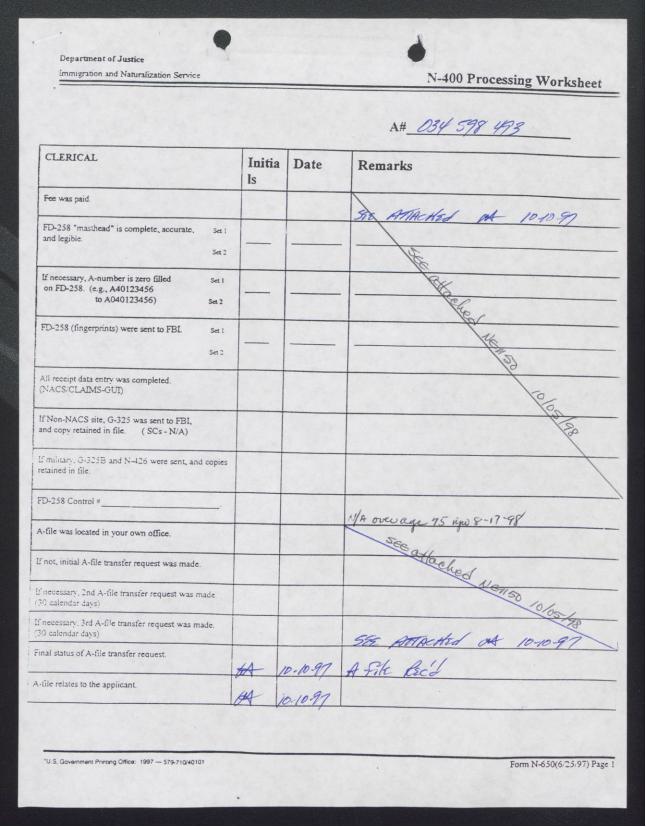 Department of Justice
Immigration and Naturalization Service
N-400 Processing Worksheet
A# 034 598 493
CLERICAL
Initia
ls
Date
Remarks
Fee was paid.
SEE ATTACHED 10-10-97
FD-258 "masthead" is complete, accurate, Set 1
and legible.
Set 2
See attached NE1150 10/05/98
If necessary, A-number is zero filled Set 1
on FD-258. (e.g., A40123456
to A040123456) Set 2
FD-258 (fingerprints) were sent to FBI. Set 1
Set 2
All receipt data entry was completed.
(NACS/CLAIMS-GUI)
If Non-NACS site, G-325 was sent to FBI,
and copy retained in file. ( SCs - N/A)
If military, G-325B and N-426 were sent, and copies
retained in file.
FD-258 Control #
N/A overage 75 8-17-98
A-file was located in your own office.
See attached NE1150 10/05/98
If not, initial A-file transfer request was made.
If necessary, 2nd A-file transfer request was made
(30 calendar days)
If necessary, 3rd A-file transfer request was made.
(30 calendar days)
SEE ATTACHED 10-10-97
Final status of A-file transfer request.
10-10-97 A file Rec'd
A-file relates to the applicant.
10-10-97
*U.S. Government Printing Office: 1997 — 579-710/40101
Form N-650(6/25/97) Page 1